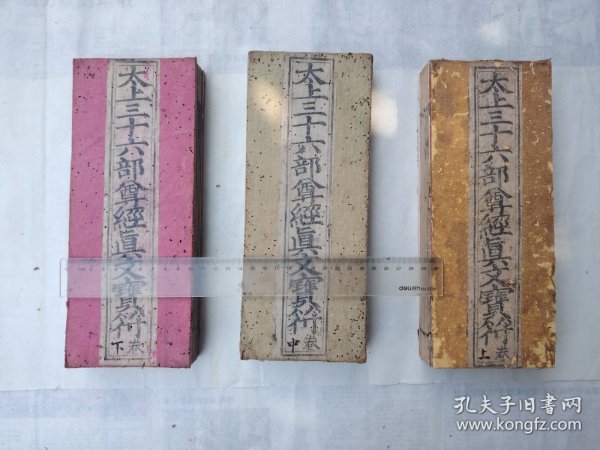 太上三十六部尊經眞文寶符
卷下
太上三十六部尊經眞文寶符
卷中
太上三十六部尊經眞文寶符
卷上
孔夫子旧书网
www.kongfz.com